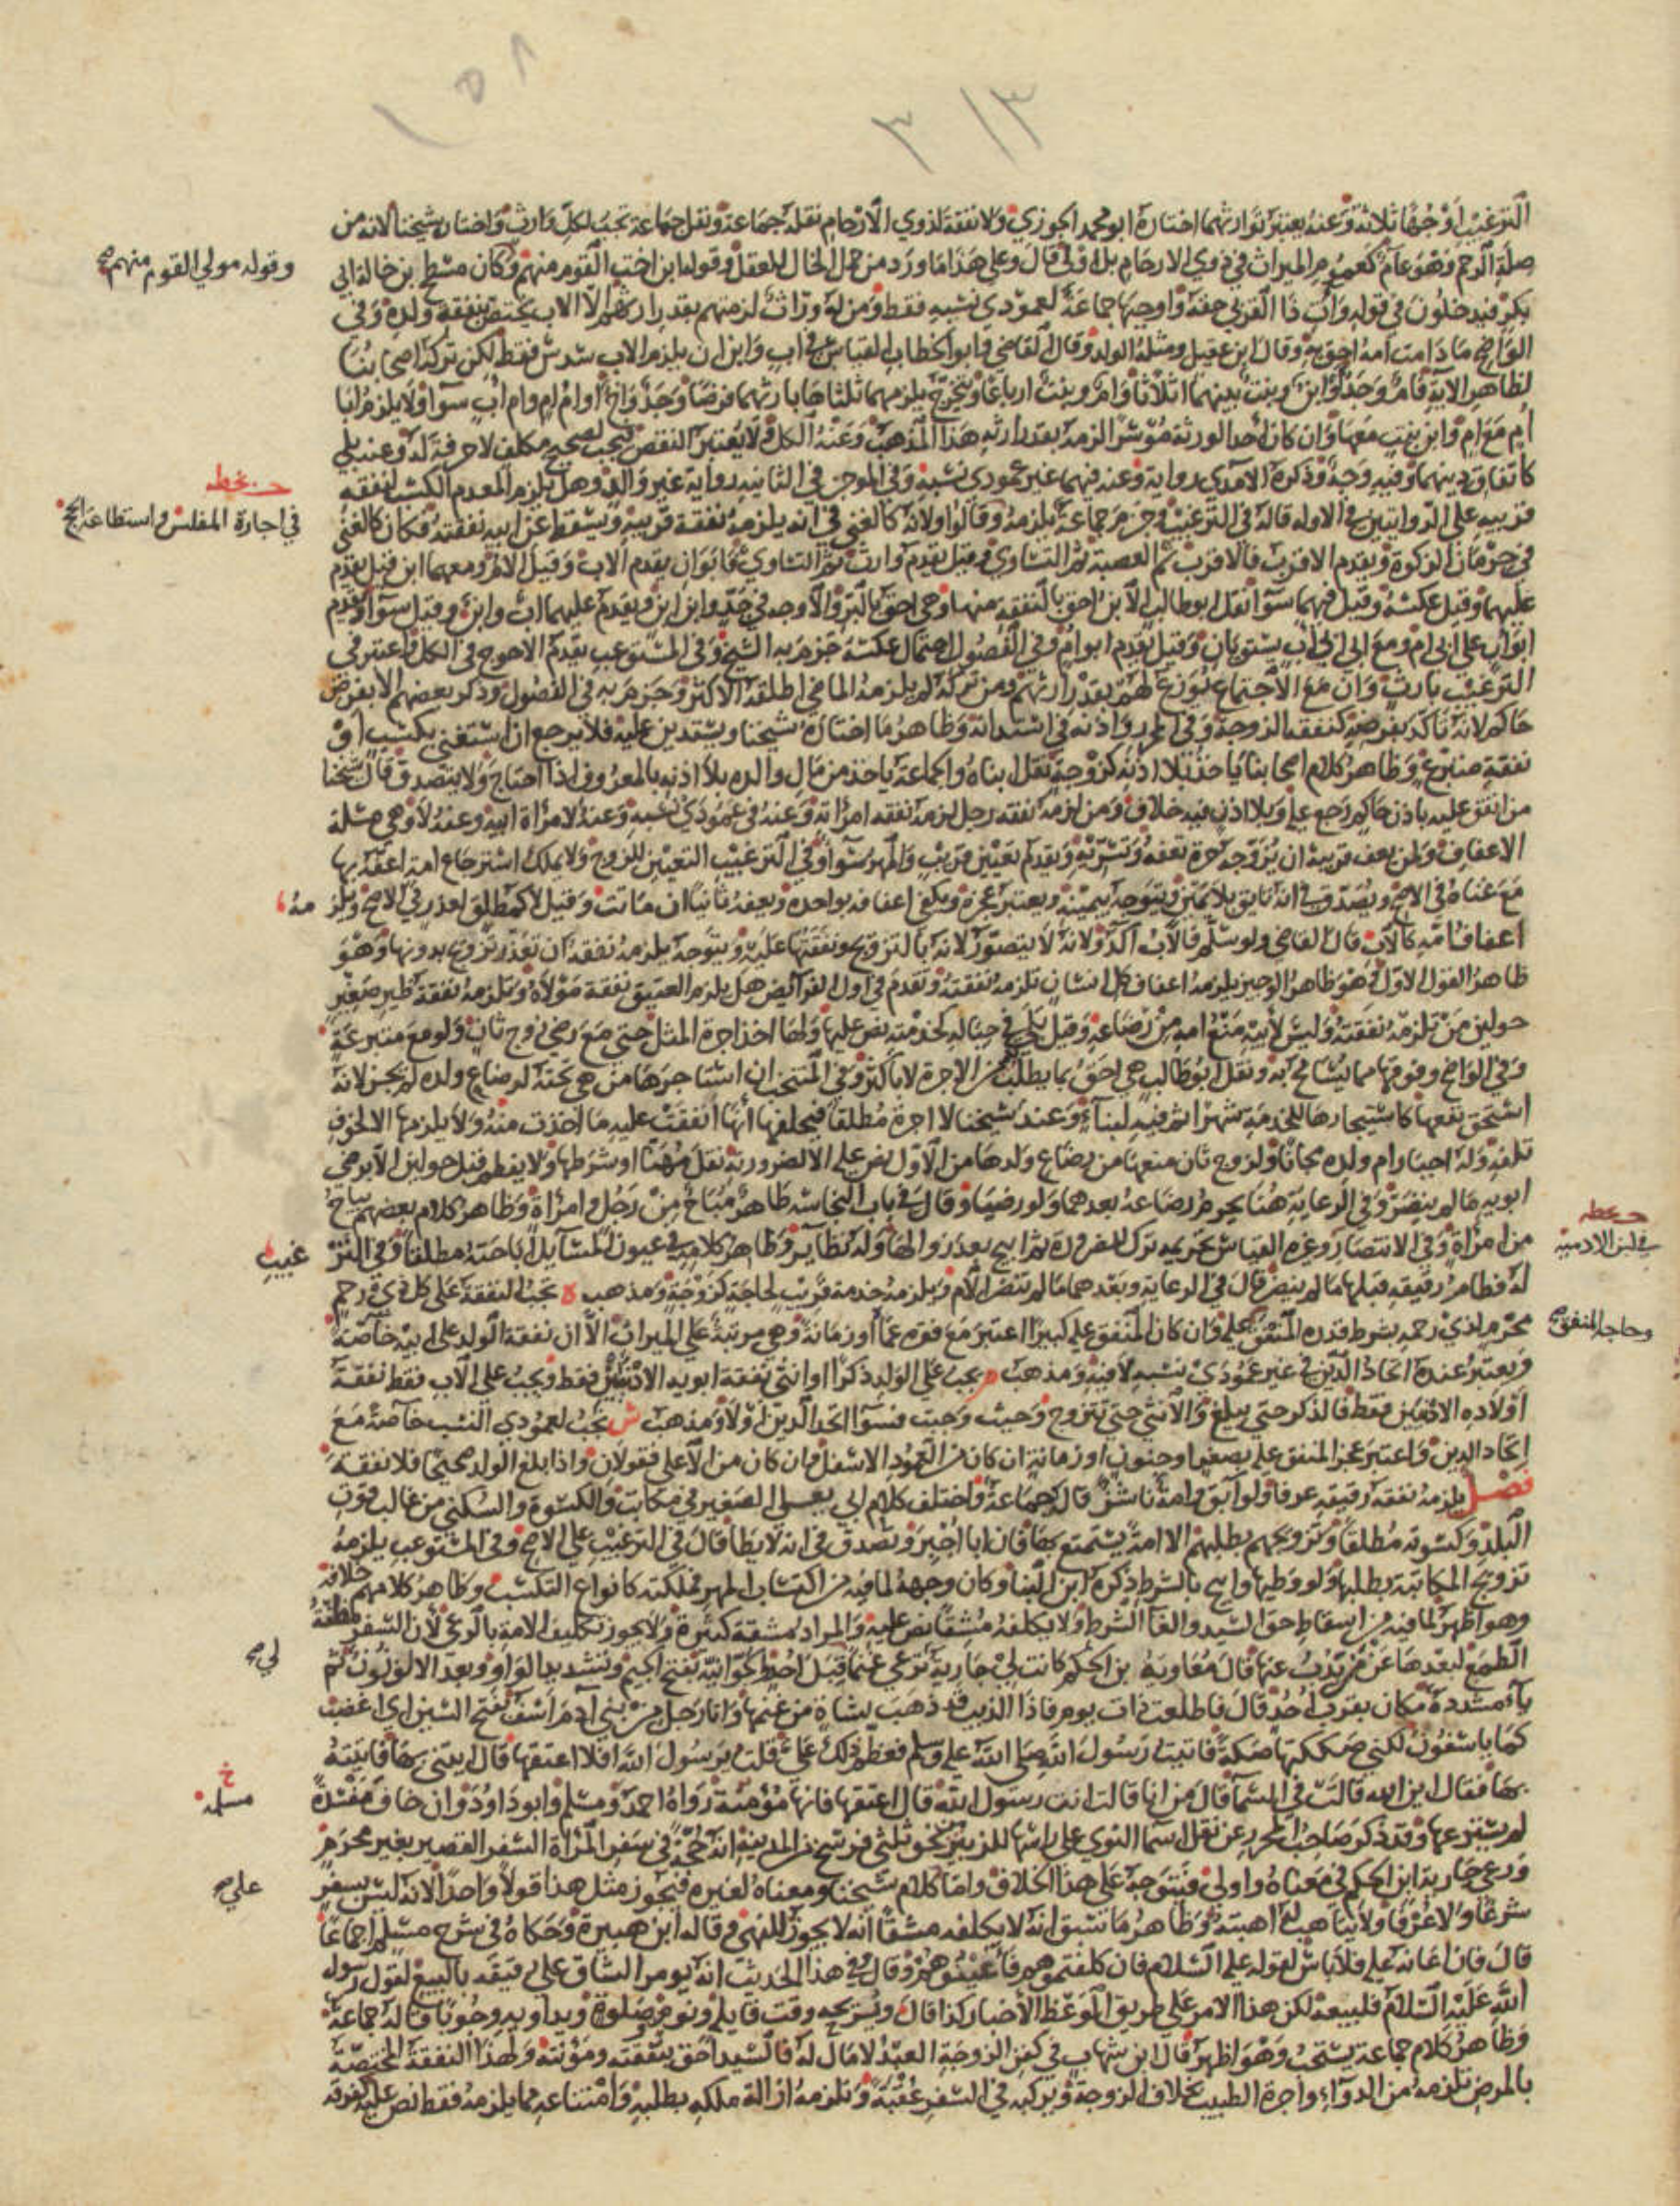 ١٥٨
٣١٣
الترغيب اوجهًا ثلاثة وعنه يعتبر توارثهما اختاره ابو محمد الجوزي ولا نفقة لذوي الارحام نقله جماعة ونقل جماعة تجب لكل وارث واختاره شيخنا لانه من
صلة الرحم وهو عام كعموم الميراث في ذوي الارحام بل اولى قال وعلى هذا ما ورد من حمل الخال للعقل وقوله ابن اخت القوم منهم وكان مسطح بن خالة ابي
وقوله مولى القوم منهم صح
بكر فيدخلون في قوله وآت ذا القربى حقه واوجبها جماعة لعمودي نسبه فقط ومن له وراث لزمتهم بقدر ارثهم الا الاب يختص بنفقة ولده وفي
الواضح ما دامت امه احق به وقال ابن عقيل ومثله الولد وقال القاضي وابو الخطاب القياس في اب وابن ان يلزم الاب سدس فقط لكن تركه اصحابنا
لظاهر الاية فام وجد وابن وبنت بينهما اثلاثا وام وبنت ارباعا ويتخرج يلزمهما ثلثاها بارثهما فرضا وجد واخ او ام ام وام اب سواء ولا يلزم ابا
ام مع ام وابن بنت معها وان كان احد الورثة موسرا لزمه بقدر ارثه هذا المذهب وعنه الكل ولا يعتبر النقص فتجب لصحيح مكلف لا حرفة له وعنه بلى
كاتفاق دينهما وفيه وجه وذكره الامدي رواية وعنه فيهما غير عمودي نسبه وفي الموجز في الثانية رواية غير والد وهل يلزم المعدم الكسب لنفقة
قريبه على الروايتين في الاولة قاله في الترغيب وجزم جماعة يلزمه وقالوا ولانه كالغني في انه يلزمه نفقة قريبه ويسقط عن ابيه نفقته فكان كالغني
حـ بخطه
في اجارة المفلس واستطاعة الحج
في حرمان الزكوة ويقدم الاقرب فالاقرب ثم العصبة ثم التساوي وقيل يقدم وارث ثم التساوي فابوان يقدم الاب وقيل الام ومعهما ابن قيل يقدم
عليهما وقيل عكسه وقيل فيهما سواء نقل ابو طالب الابن احق بالنفقة منها وهي احق بالبر والاوجه في جد وابن ابن ويقدم عليهما اب وابن وقيل سواء ويقدم
ابو اب على ابي ام ومع ابي ابي اب يستويان وقيل يقدم ابو ام وفي الفصول احتمال عكسه جزم به الشيخ وفي المستوعب يقدم الاحوج في الكل واعتبر في
الترغيب بارث وان مع الاجتماع يوزع لهم بقدر ارثهم ومن تركه لم يلزمه الماضي اطلقه الاكثر وجزم به في الفصول وذكر بعضهم الا بفرض
حاكم لانه تاكد بفرضه كنفقة الزوجة وفي المحرر واذنه في استدانة وظاهر ما اختاره شيخنا ويستدين عليه فلا يرجع ان استغنى بكسب او
نفقة متبرع وظاهر كلام اصحابنا ياخذ بلا اذنه كزوجة نقل ابناه والجماعة ياخذ من مال والده بلا اذنه بالمعروف اذا احتاج ولا يتصدق قال شيخنا
من انفق عليه باذن حاكم رجع عليه وبلا اذن فيه خلاف ومن لزمه نفقة رجل لزمه نفقة امراته وعنه في عمودي نسبه وعنه لامراة ابيه وعنه لا وهي مسئلة
الاعفاف ولمن يعف قريبه ان يزوجه حرة تعفه وتسريه ويقدم تعيين قريب والمهر سواء وفي الترغيب التعيين للزوج ولا يملك استرجاع امة اعفه بها
مع غناه في الاصح ويصدق في انه تايق بلا يمين ويتوجه بيمينه ويعتبر عجزه ويكفي اعفافه بواحدة ويعفه ثانيا ان ماتت وقيل لا كمطلق لعذر في الاصح ويلزمه
اعفاف امه كالاب قال القاضي ولو سلم فالاب آكد ولانه لا يتصور لانه بالتزويج ونفقتها عليه ويتوجه يلزمه نفقته ان تعذر تزويج بدونها وهو
ظاهر القول الاول وهو ظاهر الوجيز يلزمه اعفاف كل انسان تلزمه نفقته وتقدم في اول الفرائض هل يلزم العتيق نفقة مولاه وتلزمه نفقة ظئر صغير
حولين ممن تلزمه نفقته وليس لابيه منع امه من رضاعه وقيل بلى في حباله لخدمته نص عليها ولها اخذ اجرة المثل حتى مع رضى زوج ثان ولو مع متبرعة
وفي الواضح وفوقها مما يتسامح به ونقل ابو طالب هي احق بما يطلب من الاجرة لا باكثر وفي المنتخب ان استاجرها من هي تحته لرضاع ولده لم يجز لانه
استحق نفعها كاستيجارها للخدمة شهرا ثم فيه لبناء وعند شيخنا لا اجرة مطلقا فيحلفها انها انفقت عليه ما اخذت منه ولا يلزمها الا لخوف
تلفه وله اجبار ام ولده مجانا ولزوج ثان منعها من رضاع ولدها من الاول نص عليه الا لضرورته نقل مهنا او شرطها ولا يفطم قبل حولين الا برضى
ابويه ما لم ينضر وفي الرعاية هنا يحرم رضاعه بعدهما ولو رضيا وقال في باب النجاسة طاهر مباح من رجل وامراة وظاهر كلام بعضهم يباح
من امراة وفي الانتصار وغيره القياس تحريمه ترك للضرورة ثم ابيح بعد زوالها وله نظاير وظاهر كلامه في عيون المسايل اباحته مطلقا وفي الترغيب
حـ بخطه
في لبن الادمية
له فطام رقيقه قبلهما ما لم ينضر قال في الرعاية وبعدهما ما لم تنضر الام ويلزمه خدمة قريب لحاجة كزوجة ومذهب ه تجب النفقة على كل ذي رحم
محرم لذي رحمه بشرط قدرة المنفق عليه وان كان المنفق عليه كبيرا اعتبر مع فقره عمًا او زمانة وهي مرتبة على الميراث الا ان نفقة الولد على ابيه خاصة
وحاجة المنفق صح
ويعتبر عنده اتحاد الدين في غير عمودي نسبه لا فيه ومذهب م يجب على الولد ذكرا او انثى نفقة ابويه الادنين فقط ويجب على الاب فقط نفقة
اولاده الادنين فقط فالذكر حتى يبلغ والانثى حتى تتزوج وحيث وجبت فسواء اتحد الدين اولا ومذهب ش تجب لعمودي النسب خاصة مع
اتحاد الدين واعتبر عجز المنفق عليه بصغر او جنون او زمانة ان كان من العمود الاسفل وان كان من الاعلى فقولان واذا بلغ الولد صحيحا فلا نفقة
فصل يلزمه نفقة رقيقه عرفا ولو آبق وامة ناشز قاله جماعة واختلف كلام ابي يعلى الصغير في مكاتب والكسوة والسكنى من غالب قوت
البلد وكسوته مطلقا وتزويجهم بطلبهم الا امة يستمتع بها فان ابا اجبر وتصدق في انه لا يطا قال في الترغيب على الاصح وفي المستوعب يلزمه
تزويج المكاتبة بطلبها ولو وطيها وابيح بالشرط ذكره ابن البنا وكان وجهه لما فيه من اكتساب المهر فملكته كانواع التكسب وظاهر كلامهم خلافه
وهو اظهر لما فيه من اسقاط حق السيد والغاء الشرط ولا يكلفه مشقا نص عليه والمراد مشقة كثيرة ولا يجوز تكليف الامة بالرعي لان السفر مظنة
الطمع لبعدها عن من يذب عنها قال معاوية بن الحكم كانت لي جارية ترعى غنما قبل احد والجوانية بفتح الجيم وتشديد الواو وبعد الالف نون ثم
لي صح
ياء مشددة مكان بقرب احد قال فاطلعت ذات يوم فاذا الذيب قد ذهب بشاة من غنمها وانا رجل من بني آدم آسف بفتح السين اي اغضب
كما ياسفون لكني صككتها صكة فاتيت رسول الله صلى الله عليه وسلم فعظم ذلك علي قلت يرسول الله افلا اعتقها قال ايتني بها فاتيته
بها فقال اين الله قالت في السما قال من انا قالت انت رسول الله قال اعتقها فانها مؤمنة رواه احمد ومسلم وابو داود وان خاف مفسدة
خ
مسلمة
لم يسترعها وقد ذكر صاحب المحرر عن نقل اسما النوى على راسها للزبير نحو ثلثي فرسخ من المدينة انه حجة في سفر المراة السفر القصير بغير محرم
ورعي جارية ابن الحكم في معناه واولى فيتوجه على هذا الخلاف واما كلام شيخنا ومعناه لغيره فيجوز مثل هذا قولا واحدا لانه ليس بسفر
علي صح
شرعا ولا عرفا ولا يتاهب له اهبته وظاهر ما سبق انه لا يكلفه مشقا انه لا يجوز للنهي وقاله ابن هبيرة وحكاه في شرح مسلم اجماعا
قال فان اعانه عليه فلا باس لقوله عليه السلام فان كلفتموهم فاعينوهم وقال في هذا الحديث انه يومر الشاق على رقيقه بالبيع لقول رسول
الله عليه السلام فليبعه لكن هذا الامر على طريق الوعظ الاخبار كذا قال ويريحه وقت قايلة ونوم وصلوة ويداويه وجوبا قاله جماعة
وظاهر كلام جماعة يستحب وهو اظهر قال ابن شهاب في كفن الزوجة العبد لا مال له فالسيد احق بنفقته ومؤنته ولهذا النفقة المختصة
بالمرض تلزمه من الدواء واجرة الطبيب بخلاف الزوجة ويركبه في السفر عقبة وتلزمه ازالة ملكه بطلبه وامتناعه مما يلزمه فقط نص عليه كفرقة